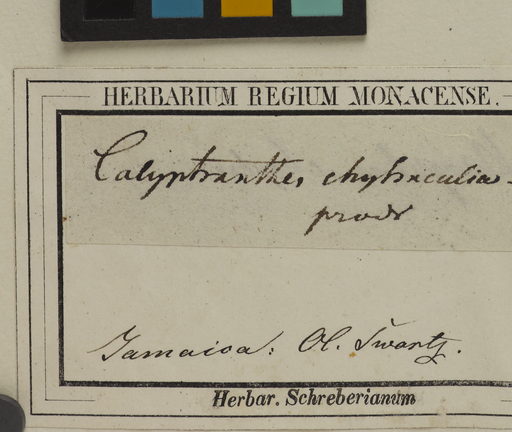 HERBARIUM REGIUM MONACENSE.
Calyptranthes chytraculia
prodr
Jamaica: Ol. Swartz.
Herbar. Schreberianum